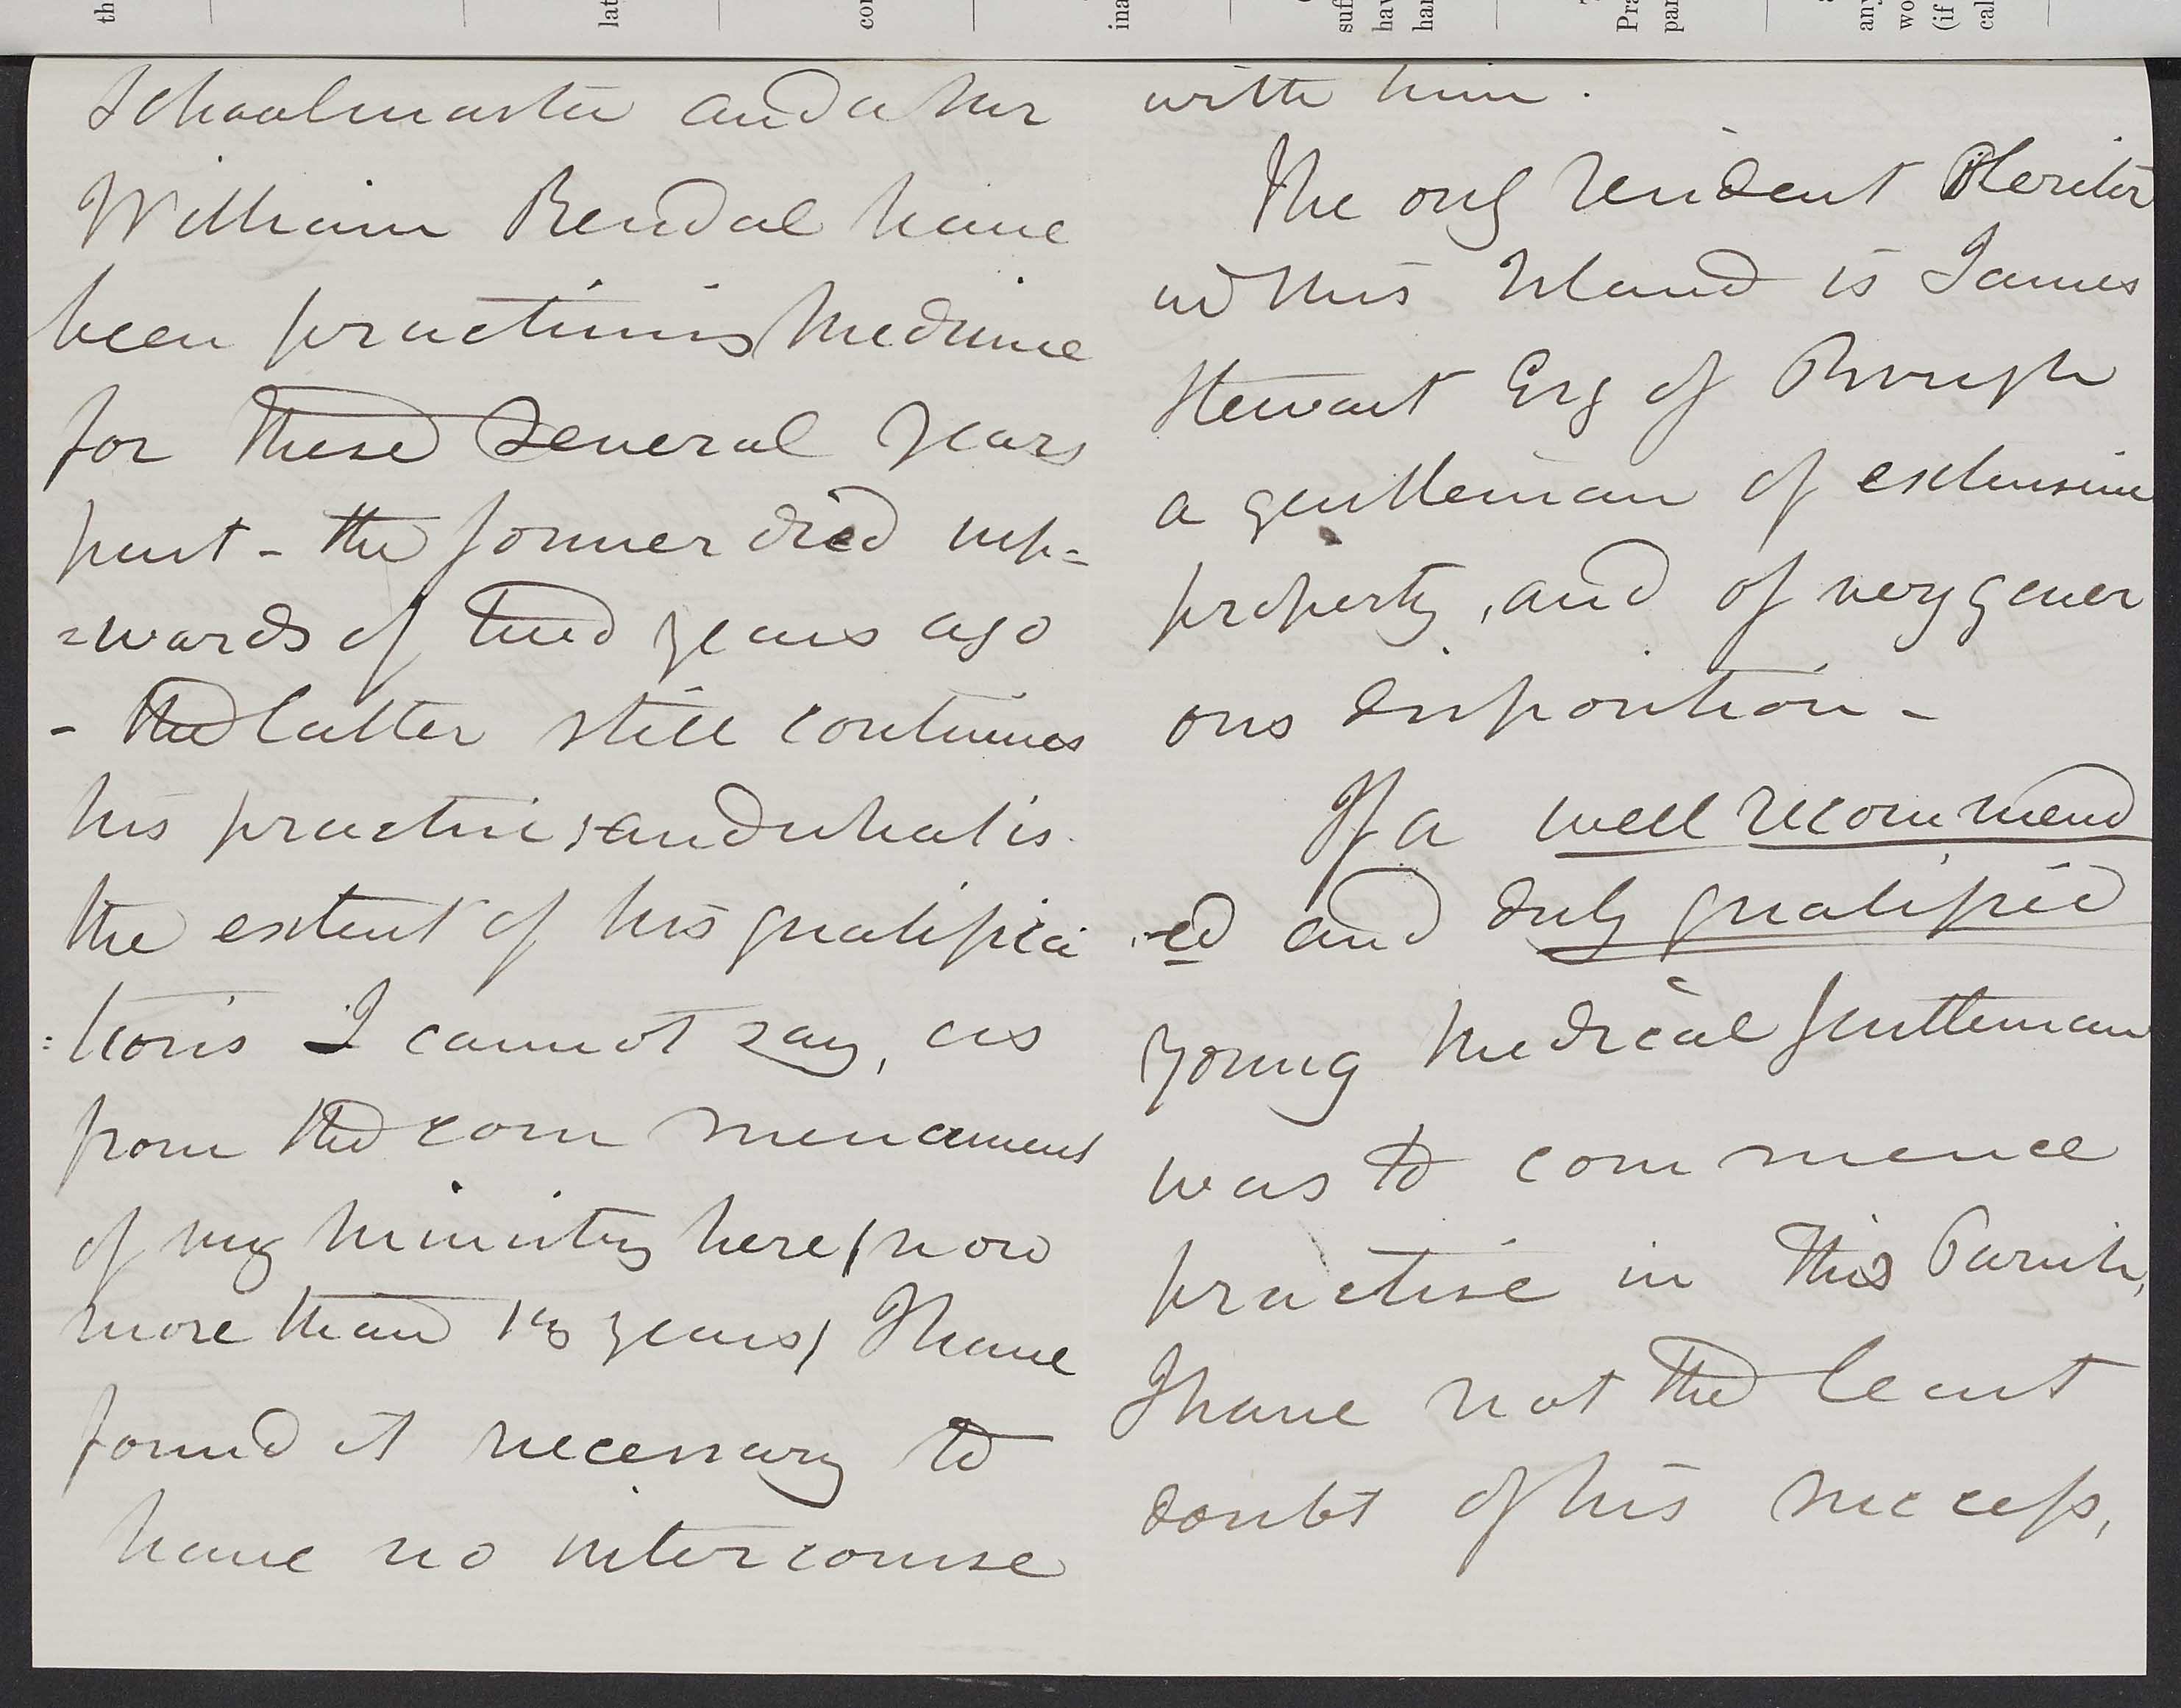 th
lat
con
ina
suf
hav
har
Pra
par
any
wo
(if
cal
Schoolmaster and a Mr
William Rendal have
been practising Medicine
for these several years
past - the former died up=
=wards of two years ago
- the latter still continues
his practice; and what is
the extent of his qualifica
:tions I cannot say, as
from the commencement
of my ministry here / now
more than years / I have
found it necessary to
have no intercourse
with him.
The only resident Heritor
in this Island is James
Stewart Esq of Brugh
a gentleman of extensive
property, and of very gener
ous disposition -
If a well recommend
-ed and duly qualified
young Medical Gentleman
was to commence
practise in this Parish,
I have not the least
doubt of his success,